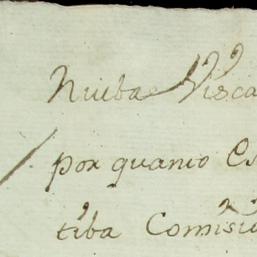 Nueba Visca
por quanto Es
tiba Comisio